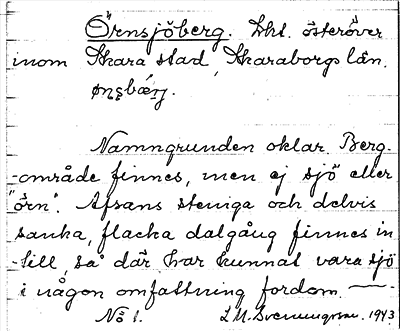 Örnsjöberg. Lht. österöver
inom Skara stad, Skaraborgs län.
Namngrunden oklar. Berg-
område finnes, men ej sjö eller
"örn". Afsans steniga och delvis
sanka, flacka dalgång finnes in-
till, så där har kunnat vara sjö
i någon omfattning fordom.
No 1. 1943